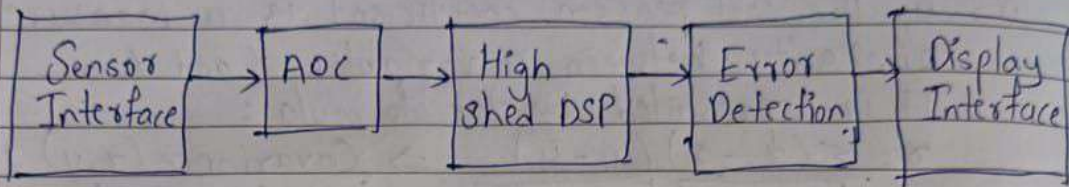 Sensor
Interface
AOC
High
shed DSP
Error
Detection
Display
Interface